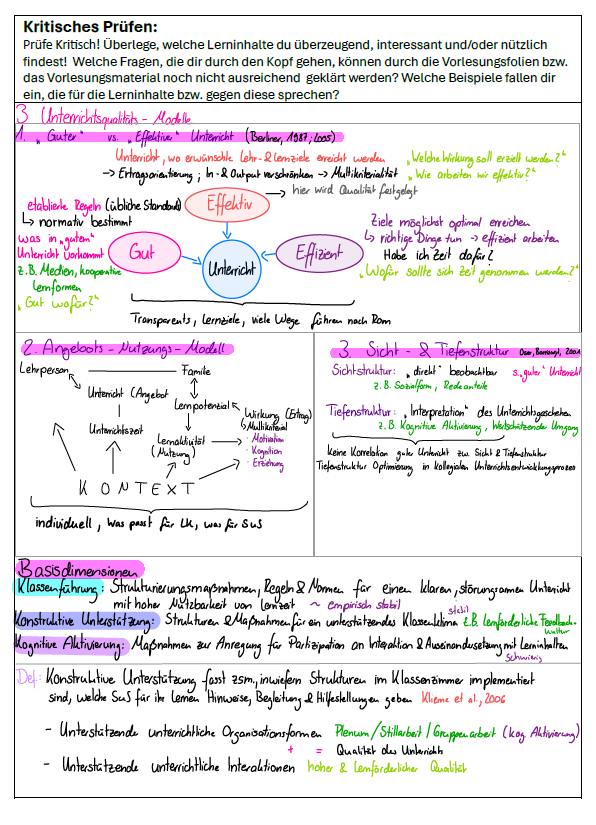 Kritisches Prüfen:
Prüfe Kritisch! Überlege, welche Lerninhalte du überzeugend, interessant und/oder nützlich
findest! Welche Fragen, die dir durch den Kopf gehen, können durch die Vorlesungsfolien bzw.
das Vorlesungsmaterial noch nicht ausreichend geklärt werden? Welche Beispiele fallen dir
ein, die für die Lerninhalte bzw. gegen diese sprechen?
3 Unterrichtsqualitäts - Modelle
1. „Guter" vs. „Effektiver" Unterricht (Berliner, 1987; 2005)
Unterricht, wo erwünschte Lehr- & Lernziele erreicht werden
„Welche Wirkung soll erzielt werden?"
→ Ertragsorientierung; In- & Output verschränken → Multikriterialität
„Wie arbeiten wir effektiv?"
→ hier wird Qualität festgelegt
etablierte Regeln (übliche Standards)
↳ normativ bestimmt
Effektiv
Ziele möglichst optimal erreichen
↳ richtige Dinge tun → effizient arbeiten
Habe ich Zeit dafür?
„Wofür sollte sich Zeit genommen werden?"
was in „gutem"
Unterricht vorkommt
z.B. Medien, kooperative
Lernformen
„Gut wofür?"
Gut
Unterricht
Effizient
Transparents, Lernziele, viele Wege führen nach Rom
2. Angebots - Nutzungs - Modell
Lehrperson
Familie
Unterricht (Angebot
Lernpotenzial
Unterrichtszeit
Wirkung (Ertrag)
Multikriterial
· Motivation
· Kognition
· Erziehung
Lernaktivität
(Nutzung)
KONTEXT
individuell, was passt für LK, was für SuS
3. Sicht - & Tiefenstruktur Oser, 2001
Sichtstruktur: „direkt" beobachtbar s. „guter" Unterricht
z.B. Sozialform, Redeanteile
Tiefenstruktur: „Interpretation" des Unterrichtsgeschehen
z.B. Kognitive Aktivierung, Wertschätzender Umgang
Keine Korrelation guter Unterricht zw. Sicht & Tiefenstruktur
Tiefenstruktur Optimierung in kollegialen Unterrichtsentwicklungsprozess
Basisdimensionen
Klassenführung: Strukturierungsmaßnahmen, Regeln & Normen für einen klaren, störungsarmen Unterricht
mit hoher Nutzbarkeit von Lernzeit ~ empirisch stabil
stabil
Konstruktive Unterstützung: Strukturen & Maßnahmen für ein unterstützendes Klassenklima z.B. lernförderliche Feedback-
kultur
Kognitive Aktivierung: Maßnahmen zur Anregung für Partizipation an Interaktion & Auseinandersetzung mit Lerninhalten
schwierig
Def: Konstruktive Unterstützung fasst zsm, inwiefern Strukturen im Klassenzimmer implementiert
sind, welche SuS für ihr Lernen Hinweise, Begleitung & Hilfestellungen geben Klieme et al., 2006
- Unterstützende unterrichtliche Organisationsformen Plenum / Stillarbeit / Gruppenarbeit (kog. Aktivierung)
+ = Qualität des Unterrichts
- Unterstützende unterrichtliche Interaktionen hoher & lernförderlicher Qualität